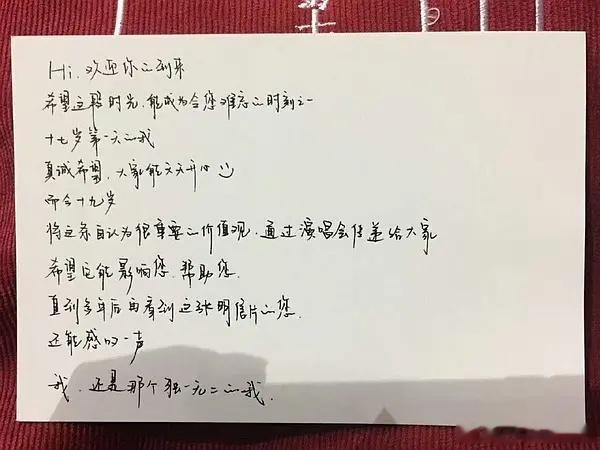 Hi. 欢迎你的到来
希望这段时光, 能成为令您难忘之时刻之一
十七岁第一天的我
真诚希望, 大家能天天开心
而今十九岁
将这条自认为很重要之价值观, 通过演唱会传递给大家
希望它能影响您, 帮助您.
直到多年后再看到这张明信片的您.
还能感叹一声
我, 还是那个独一无二的我.